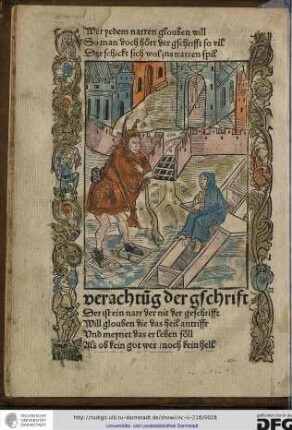 Wer yedem narren glouben will
So man doch hört der gschrifft so vil
Der schickt sich wol jns narren spil
verachtūg der gschrift
Der ist ein narr der nit der geschrifft
Will glouben die das heil antrifft
Vnd meynet das er leben söll
Als ob kein got wer / noch kein hell
TECHNISCHE
UNIVERSITÄT
DARMSTADT
http://tudigit.ulb.tu-darmstadt.de/show/inc-ii-218/0028
Universitäts- und Landesbibliothek Darmstadt
gefördert durch die
DFG